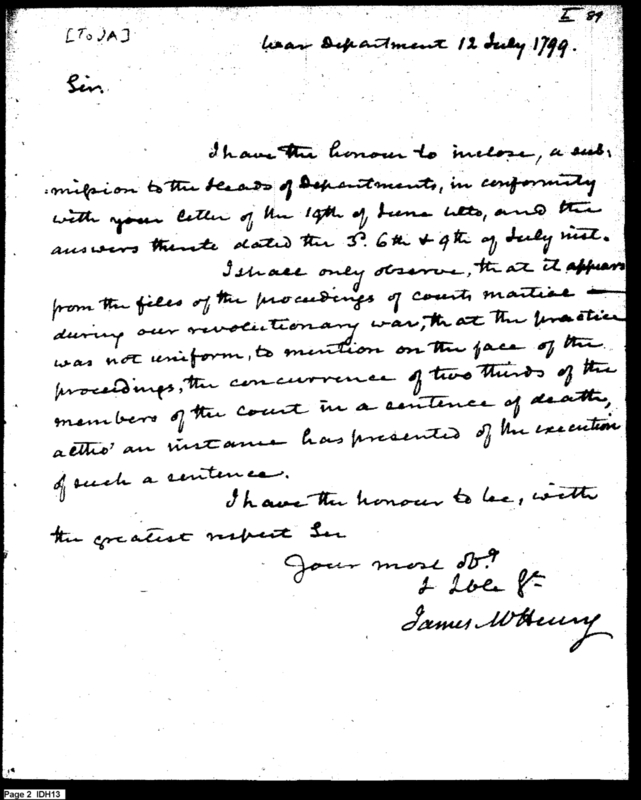 I 89
[To JA]
War Department 12 July 1799.
Sir.
I have the honour to inclose, a sub-
:mission to the Heads of Departments, in conformity
with your letter of the 19th of June ulto, and the
answers thereto dated the 3d. 6th & 9th of July inst.
I shall only observe, that it appears
from the files of the proceedings of courts martial —
during our revolutionary war, that the practice
was not uniform, to mention on the face of the
proceedings, the concurrence of two thirds of the
members of the court in a sentence of death,
altho' an instance has presented of the execution
of such a sentence.
I have the honour to be, with
the greatest respect Sir
Your most obt
& Hble St
James McHenry
Page 2 IDH13